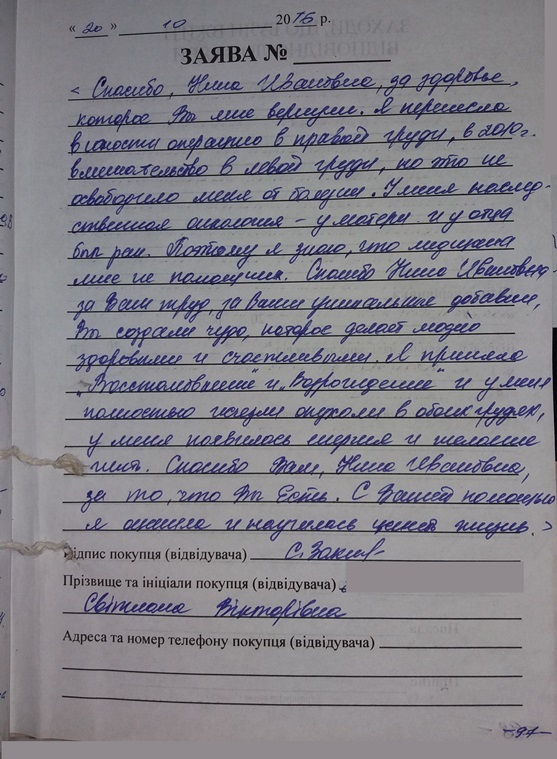 « 20 » 10 2016 р.
ЗАЯВА №
< Спасибо, Нина Ивановна, за здоровье,
которое Вы мне вернули. Я перенесла
в юности операцию в правой груди, в 2010 г.
вмешательство в левой груди, но это не
освободило меня от болезни. У меня наслед-
ственная онкология – у матери и у отца
был рак. Поэтому я знаю, что медицина
мне не помощник. Спасибо Нина Ивановна
за Ваш труд, за Ваши уникальные добавки,
Вы создали чудо, которое делает людей
здоровыми и счастливыми. Я приняла
"Восстановление" и "Возрождение" и у меня
полностью исчезли опухоли в обоих грудях,
у меня появилось энергия и желание
жить. Спасибо Вам, Нина Ивановна,
за то, что Вы Есть. С Вашей помощью
я ожила и научилась жизнь. >
Підпис покупця (відвідувача)
Прізвище та ініціали покупця (відвідувача)
Світлана Вікторівна
Адреса та номер телефону покупця (відвідувача)
-97-